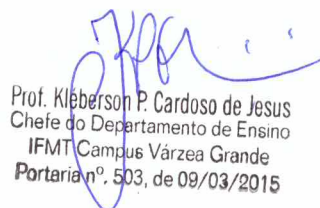 Prof. Kleberson P. Cardoso de Jesus
Chefe do Departamento de Ensino
IFMT Campus Várzea Grande
Portaria nº. 503, de 09/03/2015